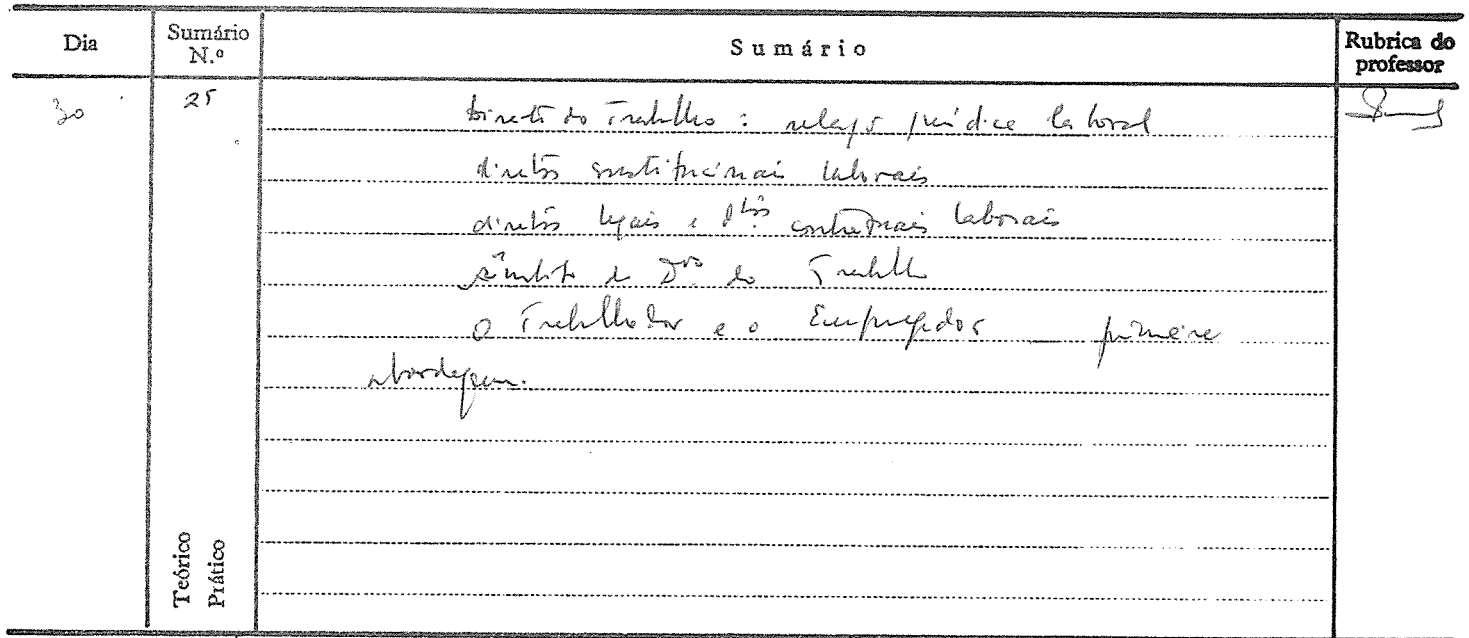 Dia
Sumário N.º
Sumário
Rubrica do professor
30
25
Direito do Trabalho : relação jurídica laboral
direitos constitucionais laborais
direitos legais e dtos. contratuais laborais
âmbito do Dto. do Trabalho
O Trabalhador e o Empregador primeira
abordagem.
Teórico
Prático